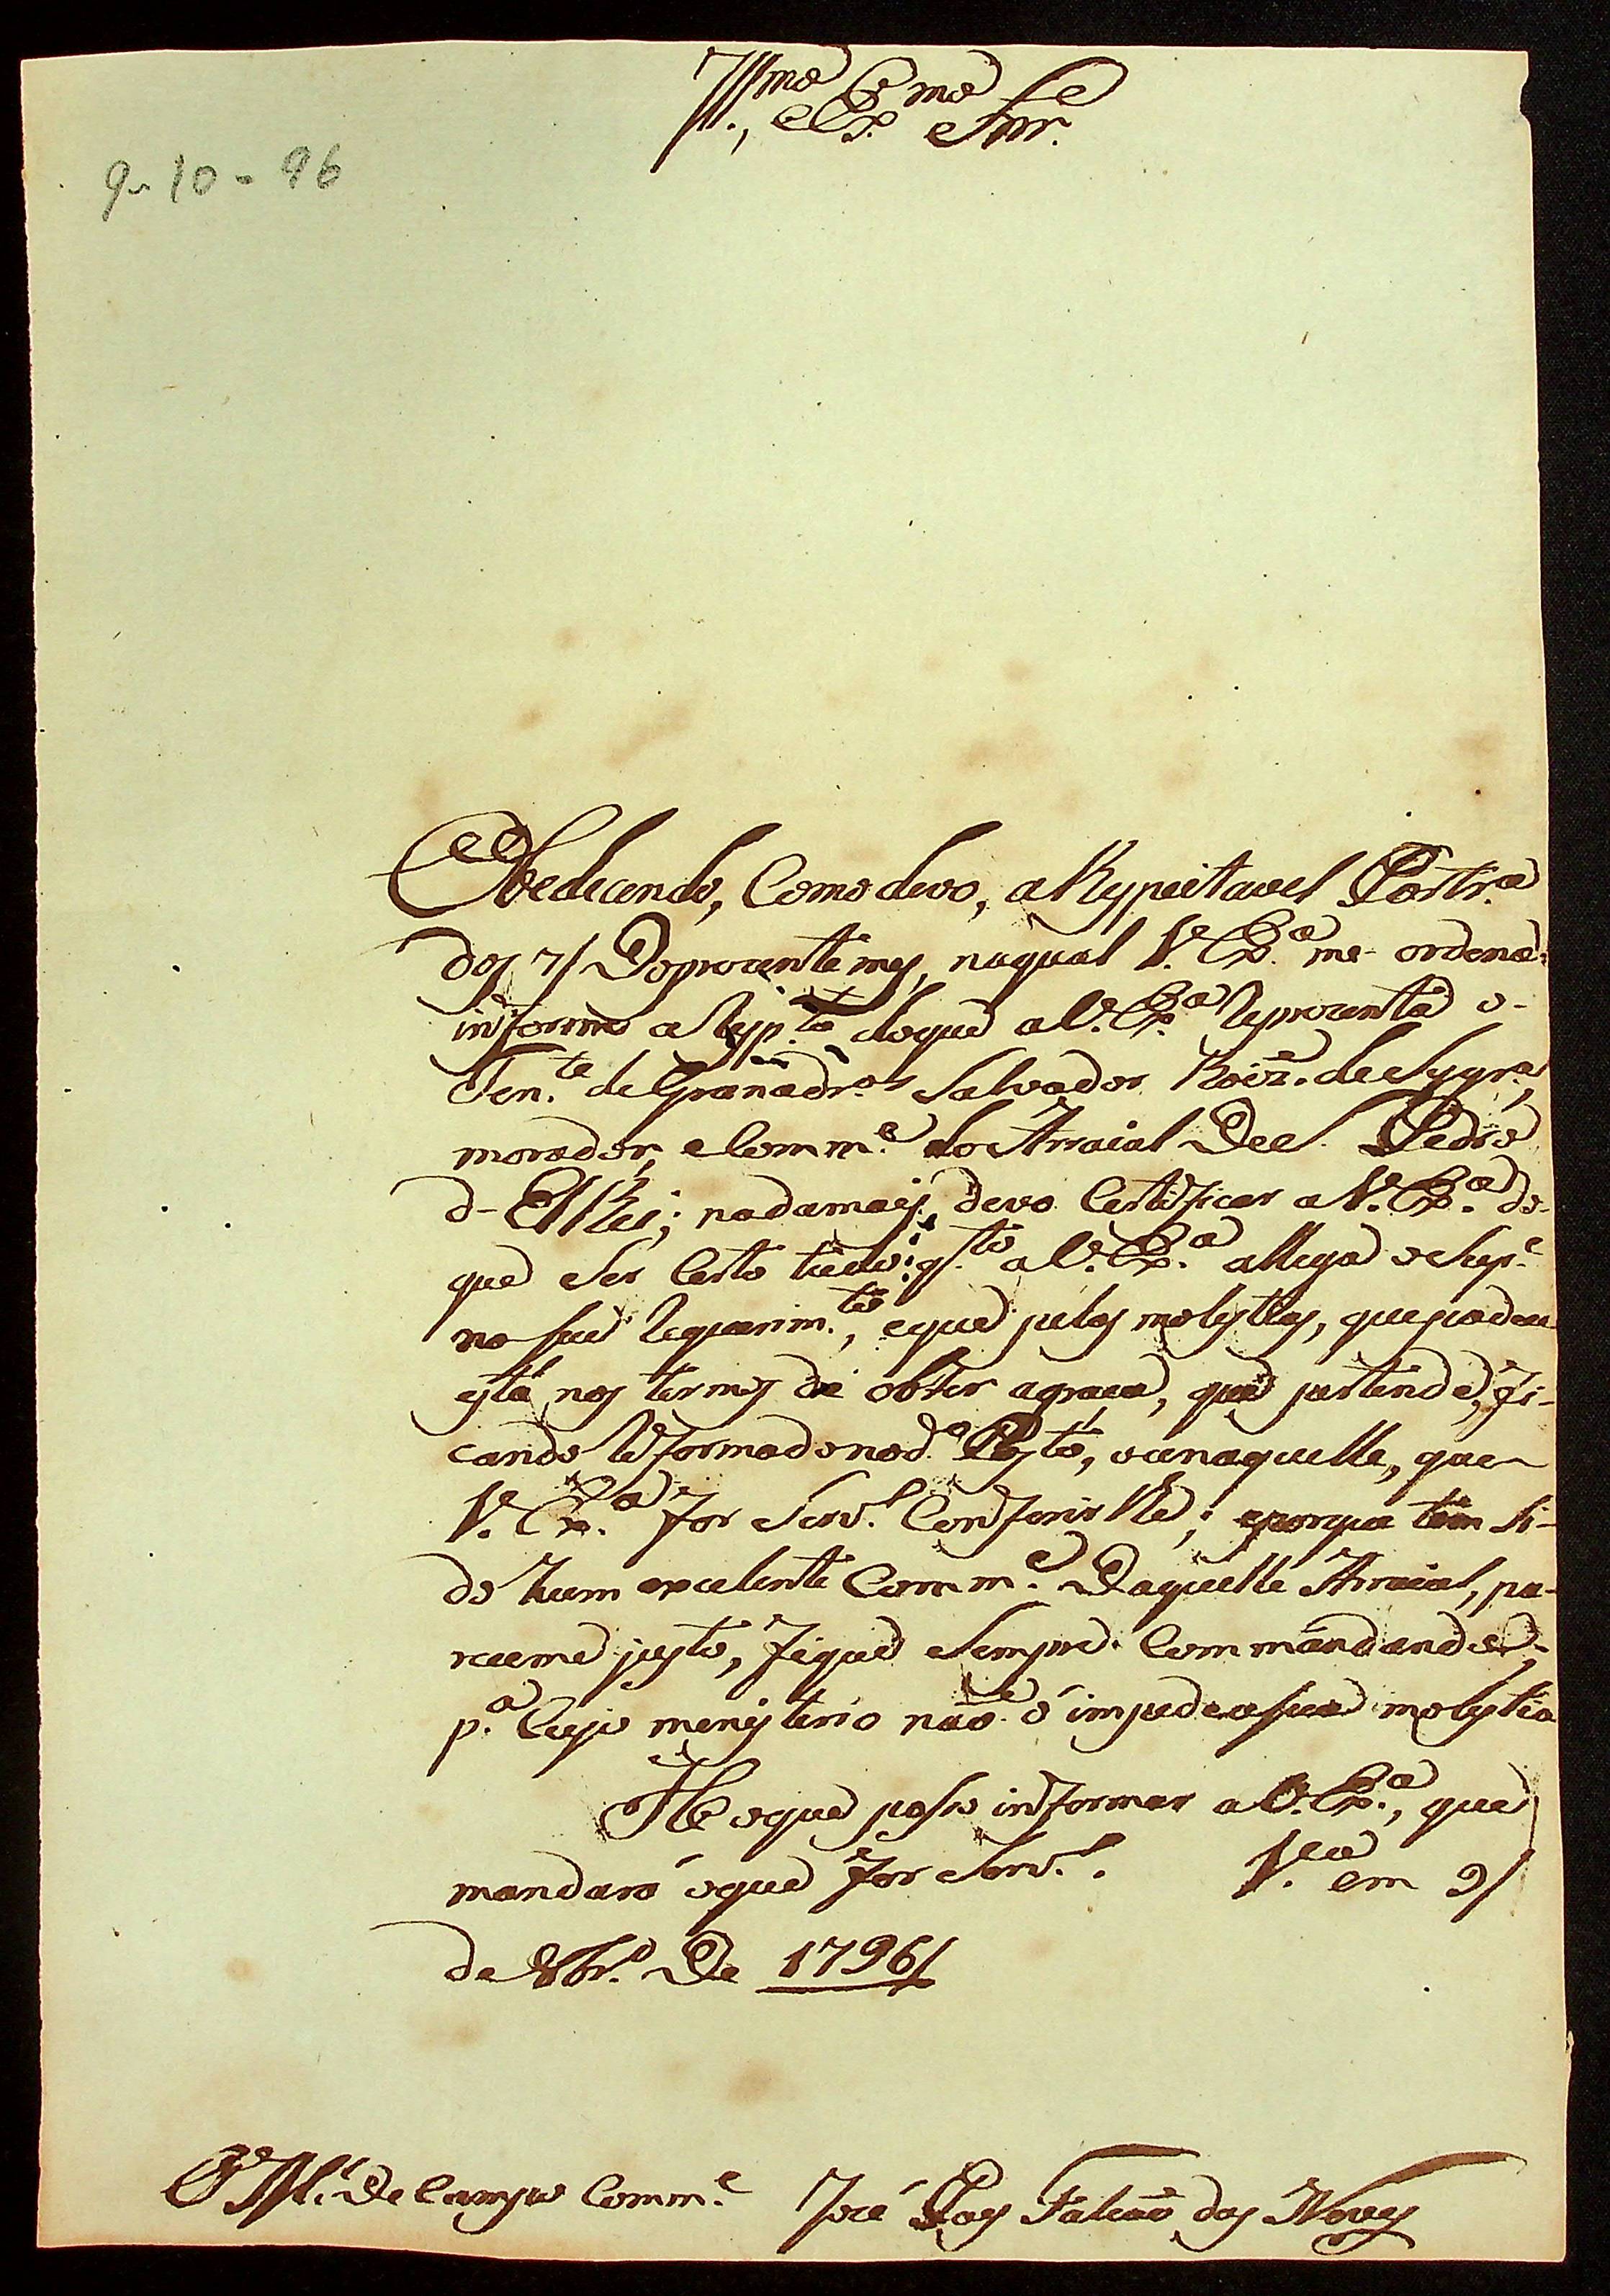 Ill.mo, e Ex.mo Snr.
9-10-96
Obedecendo, Como devo, a Respeitavel Portr.a
dos 7/ Do prezente mes, na qual V. Ex.a me ordena
informe a resp.to do que a V. Ex.a reprezenta o
Ten.te de Granadr.os Salvador Roiz. de Syqr.a,
morador, e Comm.e do Arraial De S. Pedro
d-El Rei; nada mais devo Certificar a V. Ex.a do
que Ser Certo tudo q.to a V. Ex.a allega o Sup.e
no seu requerim.to, e que pelas molestias, que padece
está nos termos de obter a graça, que pertende, fi-
cando reformado no d.o Posto, ou naquelle, que
V. Ex.a for Serv.o Conferir lhe; e porque tem Si-
do hum excelente Comm.e Daquelle Arraial, pa-
receme justo, fique Sempre Commandando,
p.a Cujo menisterio não o impede a sua molestia
He o que poso informar a V. Ex.a, que
mandará o que for Serv.o. V.a em 9/
de 8br.o De 1796/
O M.e De Campo Comm.e José Paes Falcão das Neves